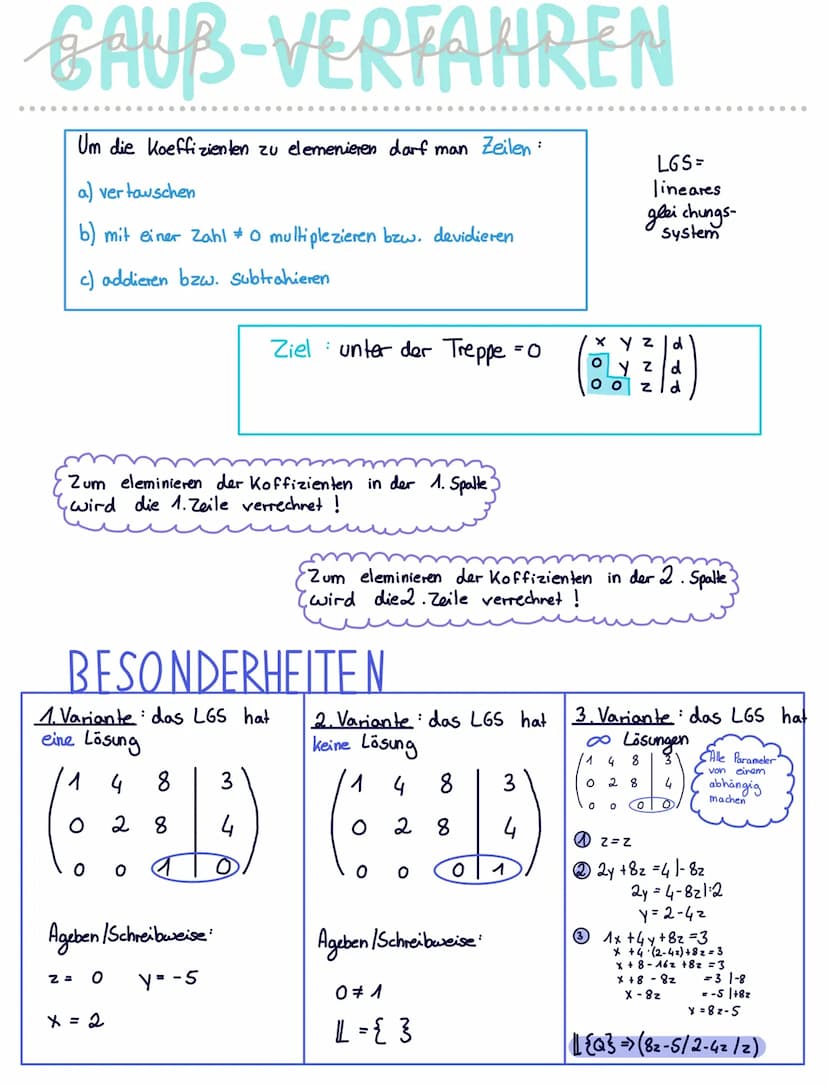 GAUß-VERFAHREN
gauß-verfahren
Um die Koeffizienten zu elemenieren darf man Zeilen:
a) vertauschen
b) mit einer Zahl ≠ 0 multiplezieren bzw. devidieren
c) addieren bzw. subtrahieren
LGS=
lineares
gleichungs-
system
Ziel : unter der Treppe = 0
x y z | d
0 y z | d
0 0 z | d
Zum eleminieren der Koffizienten in der 1. Spalte
wird die 1. Zeile verrechnet !
Zum eleminieren der Koffizienten in der 2. Spalte
wird die 2. Zeile verrechnet !
BESONDERHEITEN
1. Variante : das LGS hat
eine Lösung
1 4 8 | 3
0 2 8 | 4
0 0 1 | 0
Ageben/Schreibweise:
z = 0 y = -5
x = 2
2. Variante : das LGS hat
keine Lösung
1 4 8 | 3
0 2 8 | 4
0 0 0 | 1
Ageben/Schreibweise:
0 ≠ 1
𝕃 = { }
3. Variante : das LGS hat
∞ Lösungen
1 4 8 | 3
0 2 8 | 4
0 0 0 | 0
Alle Parameter
von einem
abhängig
machen
① z=z
② 2y +8z =4 |-8z
2y = 4-8z |:2
y = 2-4z
③ 1x +4y +8z =3
x +4·(2-4z)+8z=3
x + 8 - 16z +8z =3
x +8 - 8z =3 |-8
x - 8z = -5 |+8z
x =8z-5
𝕃{Q} ⇒ (8z-5/2-4z/z)